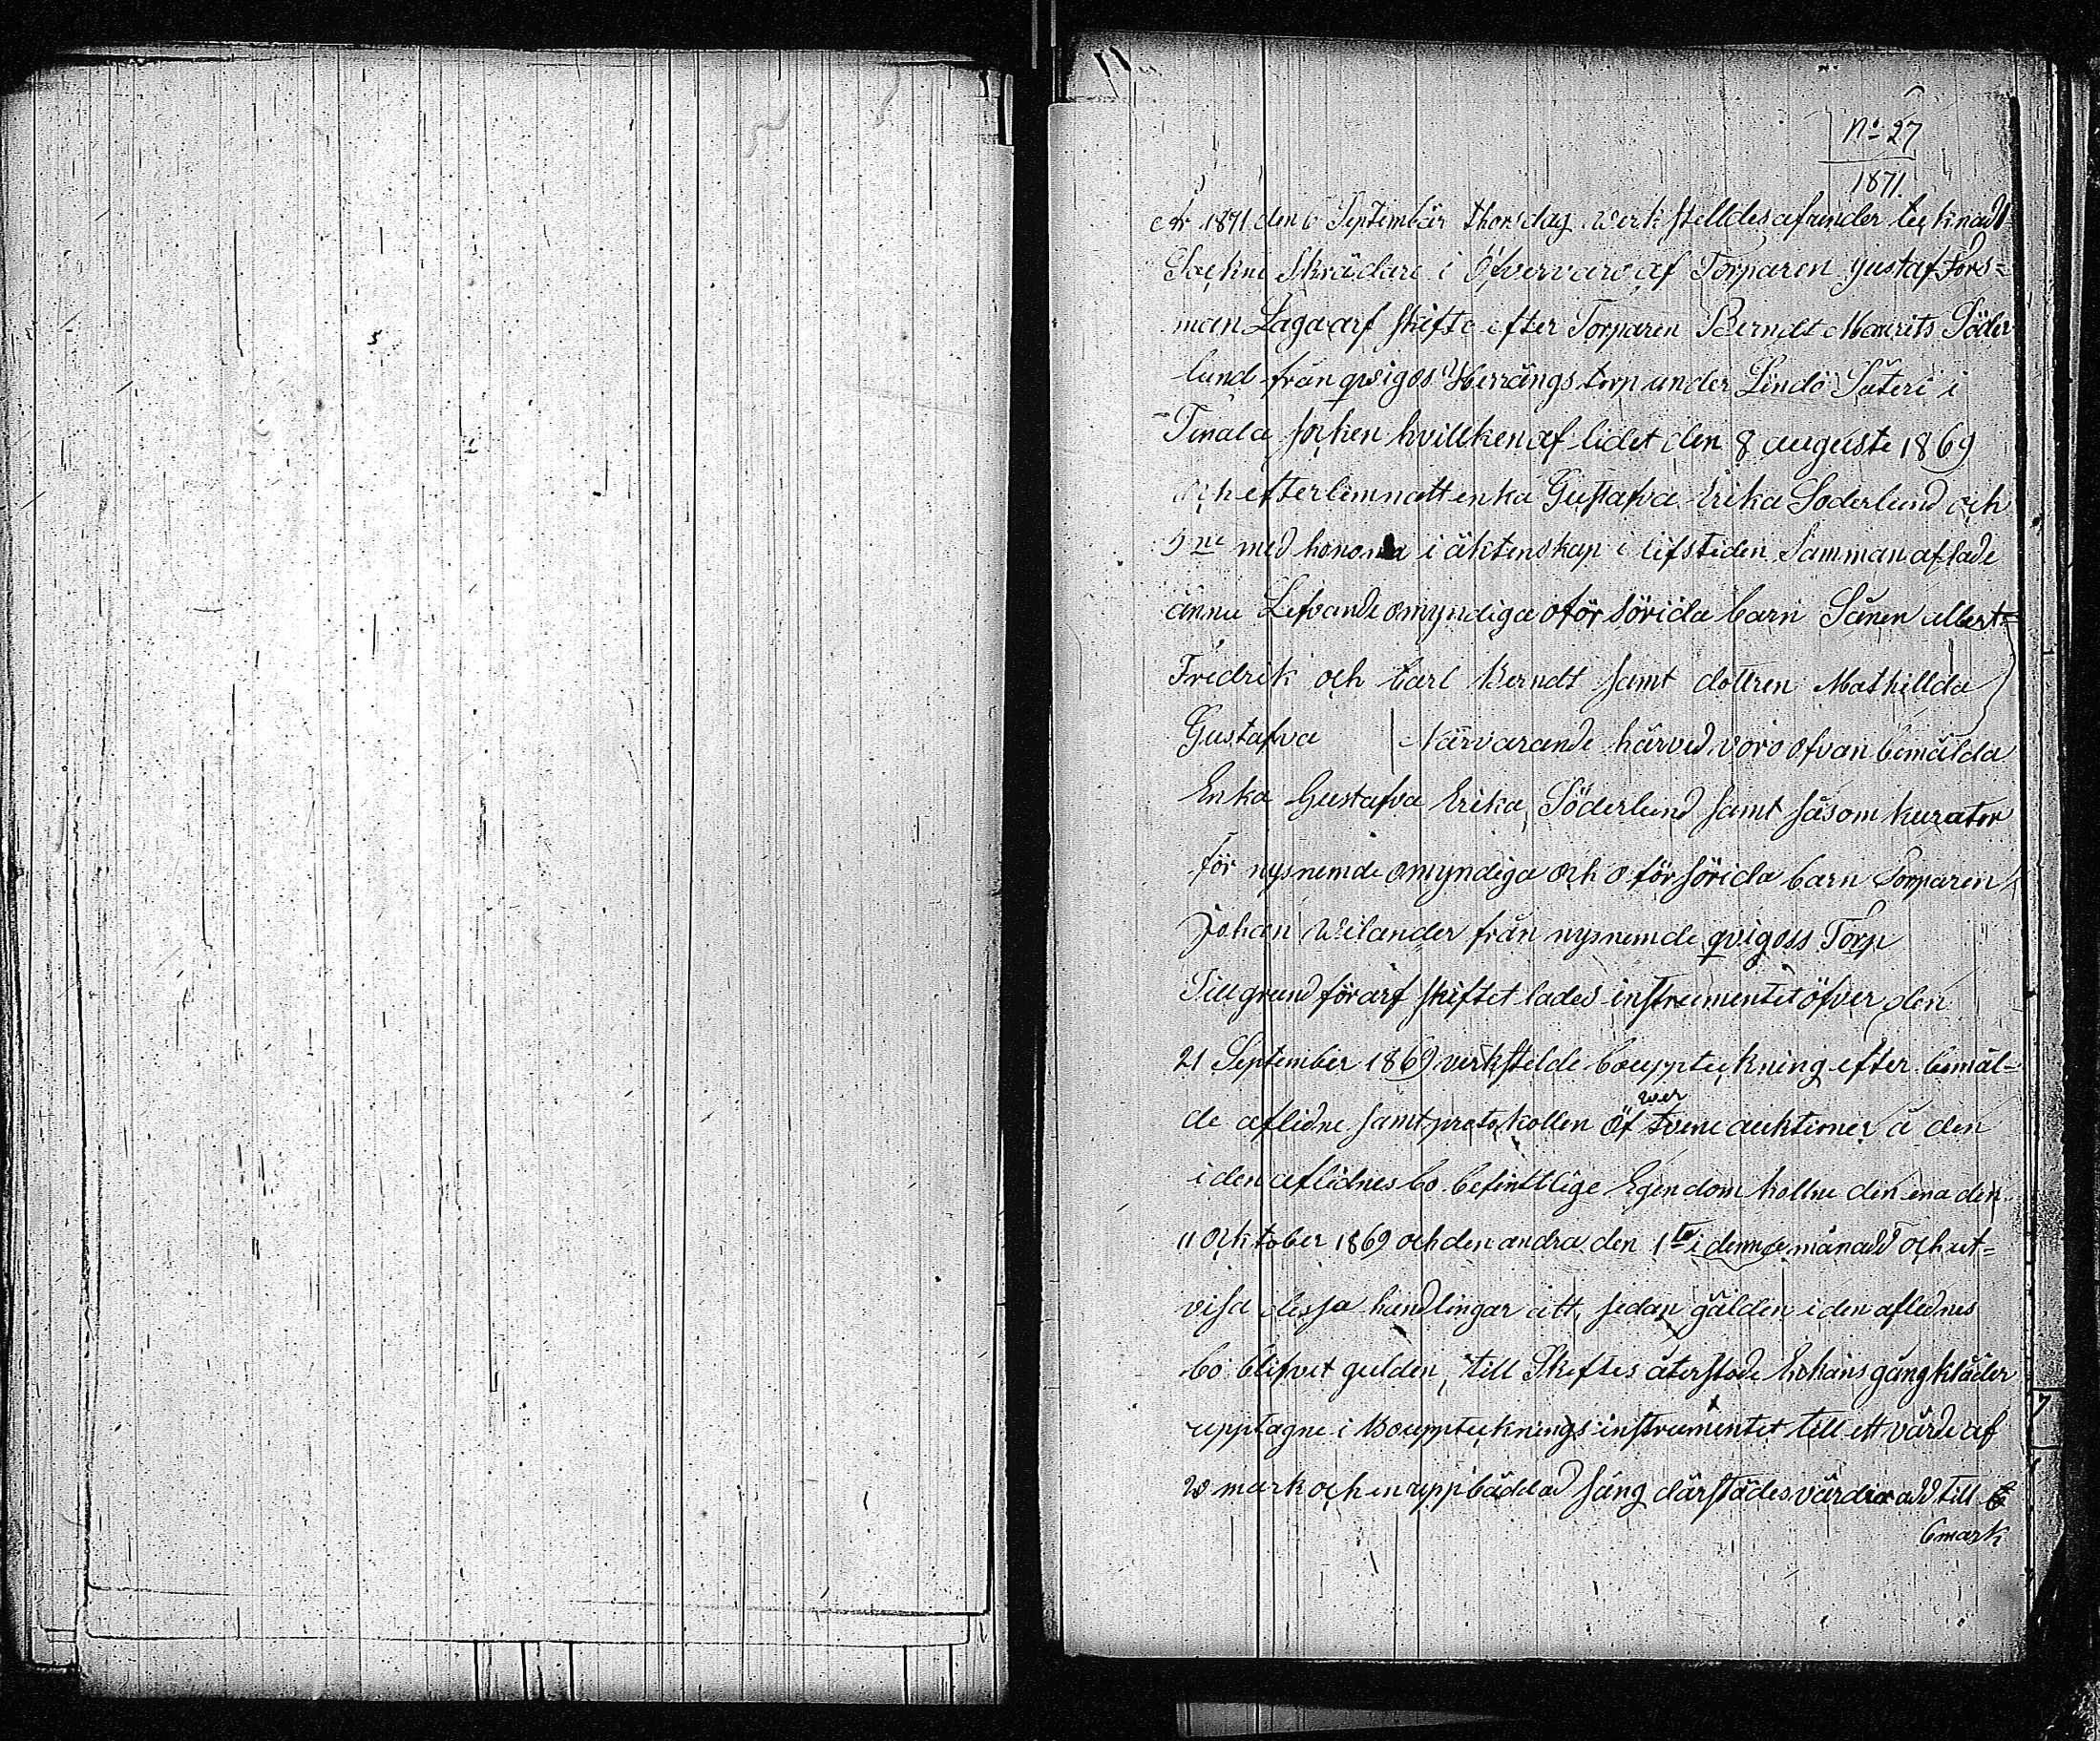 No 27
1871.
År 1871 den 6 September thorsdag werkstelldes af under tecknad
Sockne Skrädare i Öfvervaro af Torparen Gustaf Fors=
man Laga arf skifte efter Torparen Berndt Maurits Söder
lund från qvigos Herrängs torp under Lindö Säteri i
Tenala socken hvillken af lidet den 8 auguste 1869
och efterlemnatt enka Gustafva Erika Söderlund och
3ne med honom i äktenskap i lifstiden Samman aflade
ännu Lefvande omyndiga oför sörida barn Sönen albert=
Fredrik och Carl Berndt samt dottren Mathillda
Gustafva Närvarande härved voro ofvan bemälda
Enka Gustafva Erika Söderlund samt såsom kurator
för nysnemde omyndiga och o för sörida barn Torparen
Johan Wilander från nysnemde qvigoss Torp
Till grund för arf skiftet lades instrumentet öfver den
21 September 1869 verkstelde bouppteckning efter bemäl=
de aflidne samt protokollen Öfwer tvene auktioner å den
i den aflidnes bo befintllige Egendom hollne den ena den
11 Ocktober 1869 och den andra den 1ste i denna månadd och ut=
visa dessa handlingar att, sedan gälden i den aflednes
bo blifvet gulden, till Skeftes återstode hans gångkläder
upptagne i Bouppteknings instrumentet till ett värde af
20 mark och en uppbäddad säng därstädes värderadd till
6 mark